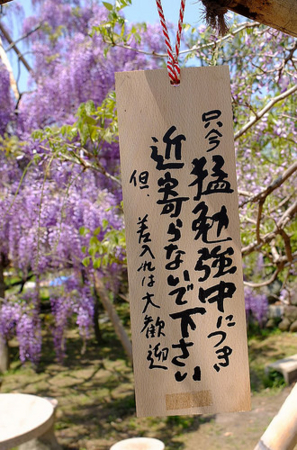 只今猛勉強中につき
近寄らないで下さい
但、差入れは大歓迎